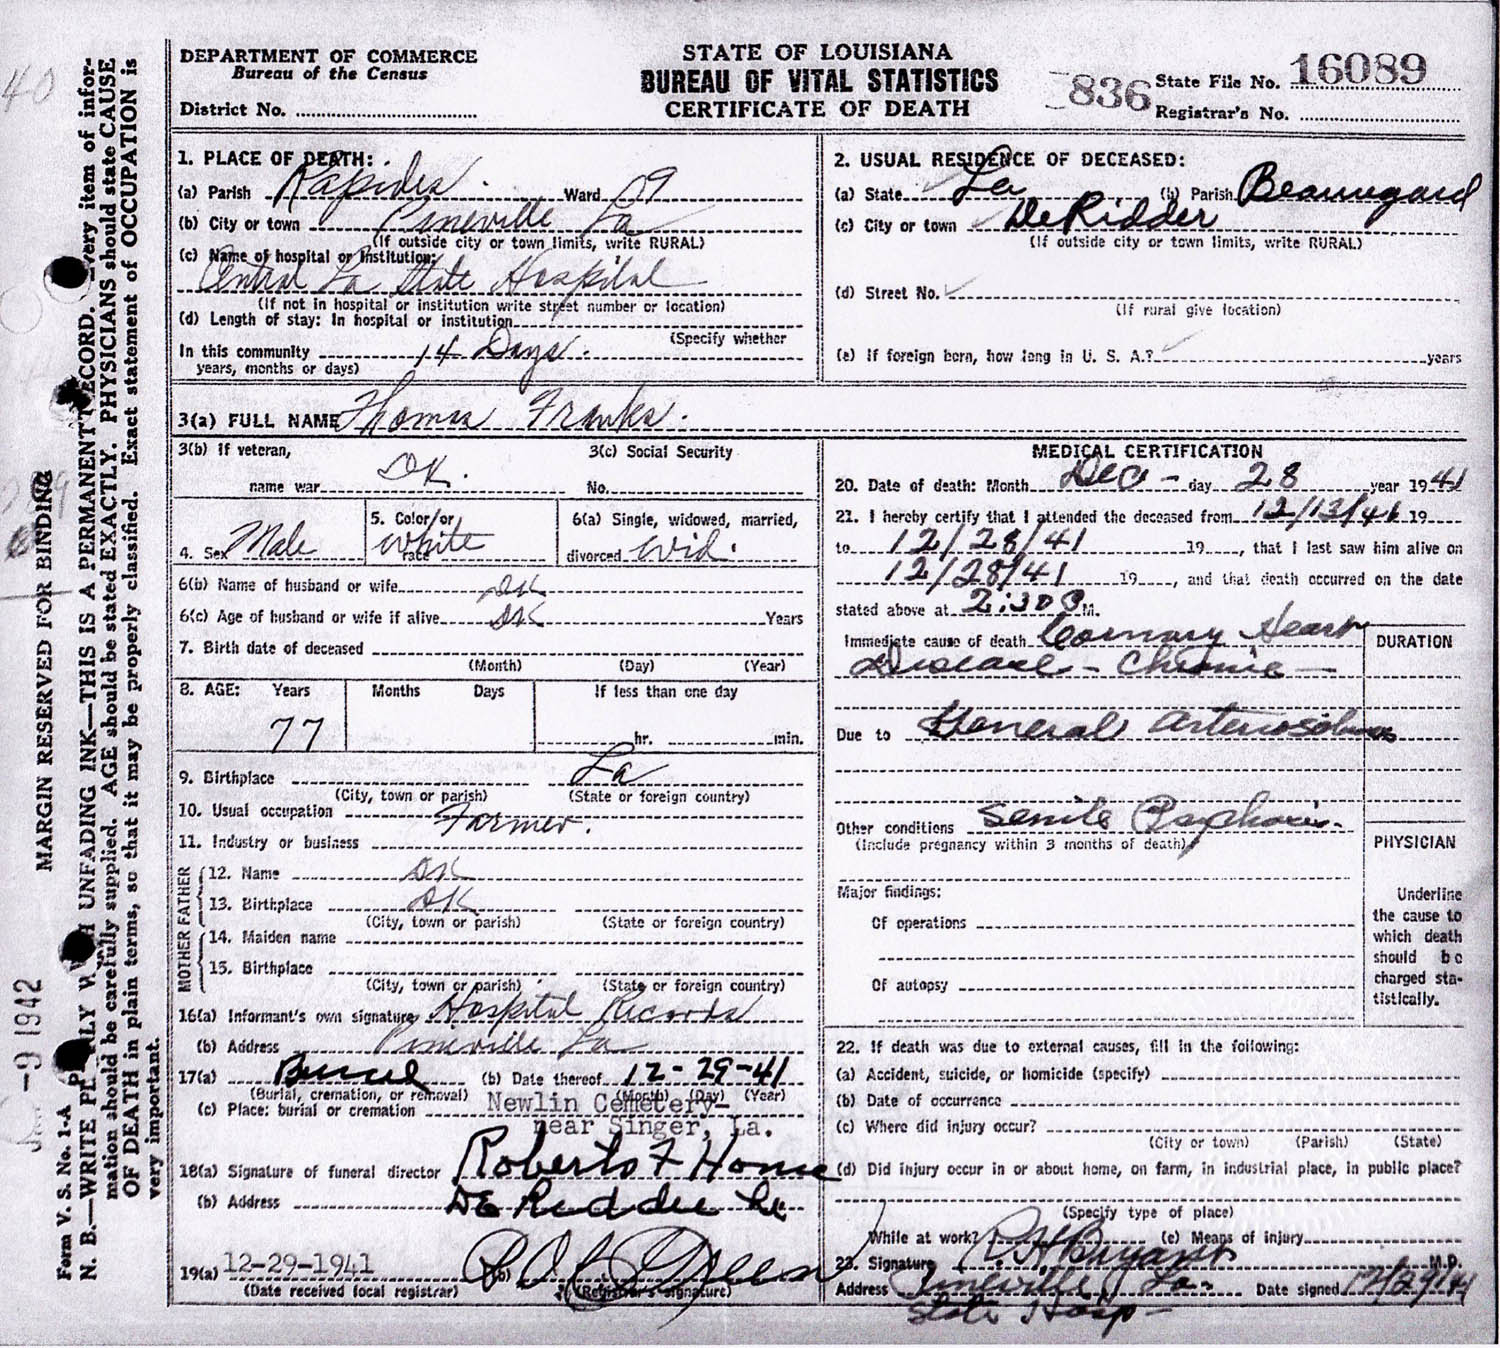 DEPARTMENT OF COMMERCE
Bureau of the Census
District No.
STATE OF LOUISIANA
BUREAU OF VITAL STATISTICS
CERTIFICATE OF DEATH
836
State File No. 16089
Registrar's No.
40
MARGIN RESERVED FOR BINDING
N. B.—WRITE PLAINLY WITH UNFADING INK—THIS IS A PERMANENT RECORD. Every item of infor-
mation should be carefully supplied. AGE should be stated EXACTLY. PHYSICIANS should state CAUSE
OF DEATH in plain terms, so that it may be properly classified. Exact statement of OCCUPATION is
very important.
Form V. S. No. 1-A
-9 1942
1. PLACE OF DEATH:
(a) Parish Rapides. Ward 09
(b) City or town Pineville La
(If outside city or town limits, write RURAL)
(c) Name of hospital or institution:
Central La State Hospital
(If not in hospital or institution write street number or location)
(d) Length of stay: In hospital or institution
(Specify whether
In this community 14 Days.
years, months or days)
2. USUAL RESIDENCE OF DECEASED:
(a) State La (b) Parish Beauregard
(c) City or town DeRidder
(If outside city or town limits, write RURAL)
(d) Street No.
(If rural give location)
(e) If foreign born, how long in U. S. A.? years
3(a) FULL NAME Thomas Franks.
3(b) If veteran,
name war DK.
3(c) Social Security
No.
4. Sex Male
5. Color/or race White
6(a) Single, widowed, married,
divorced Wid.
6(b) Name of husband or wife DK
6(c) Age of husband or wife if alive DK Years
7. Birth date of deceased
(Month) (Day) (Year)
8. AGE: Years Months Days If less than one day
77 hr. min.
9. Birthplace La
(City, town or parish) (State or foreign country)
10. Usual occupation Farmer.
11. Industry or business
FATHER
12. Name DK
13. Birthplace DK
(City, town or parish) (State or foreign country)
MOTHER
14. Maiden name
15. Birthplace
(City, town or parish) (State or foreign country)
16(a) Informant's own signature Hospital Records
(b) Address Pineville La
17(a) Burial (b) Date thereof 12-29-41
(Burial, cremation, or removal) (Month) (Day) (Year)
(c) Place: burial or cremation Newlin Cemetery-
near Singer, La.
18(a) Signature of funeral director Roberts F Home
(b) Address De Ridder La
19(a) 12-29-1941 (b)
(Date received local registrar) (Registrar's signature)
MEDICAL CERTIFICATION
20. Date of death: Month Dec - day 28 year 1941
21. I hereby certify that I attended the deceased from 12/13/41 19
to 12/28/41 19, that I last saw him alive on
12/28/41 19, and that death occurred on the date
stated above at 2:30 P M.
Immediate cause of death Coronary Heart
Disease - Chronic -
DURATION
Due to General arteriosclerosis
Other conditions Senile Psychosis-
(Include pregnancy within 3 months of death)
Major findings:
Of operations
Of autopsy
PHYSICIAN
Underline
the cause to
which death
should be
charged sta-
tistically.
22. If death was due to external causes, fill in the following:
(a) Accident, suicide, or homicide (specify)
(b) Date of occurrence
(c) Where did injury occur?
(City or town) (Parish) (State)
(d) Did injury occur in or about home, on farm, in industrial place, in public place?
(Specify type of place)
While at work? (e) Means of injury
23. Signature P. H Bryant M.D.
Address Pineville, La. Date signed 12/29/41
State Hosp-